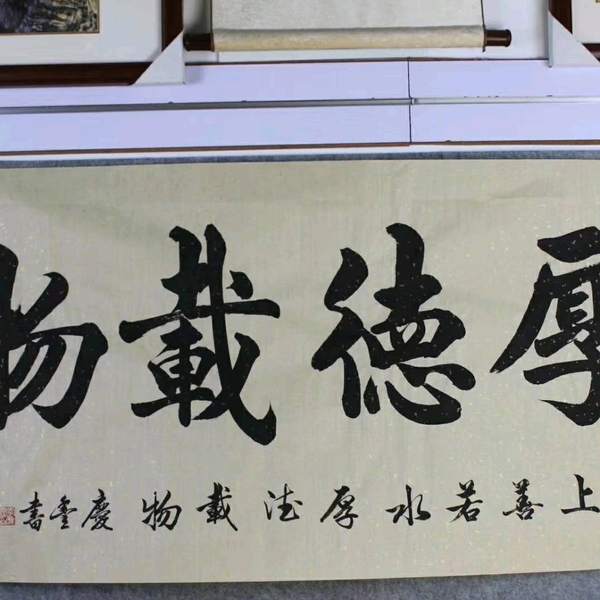 厚德載物
上善若水厚德載物慶豐書